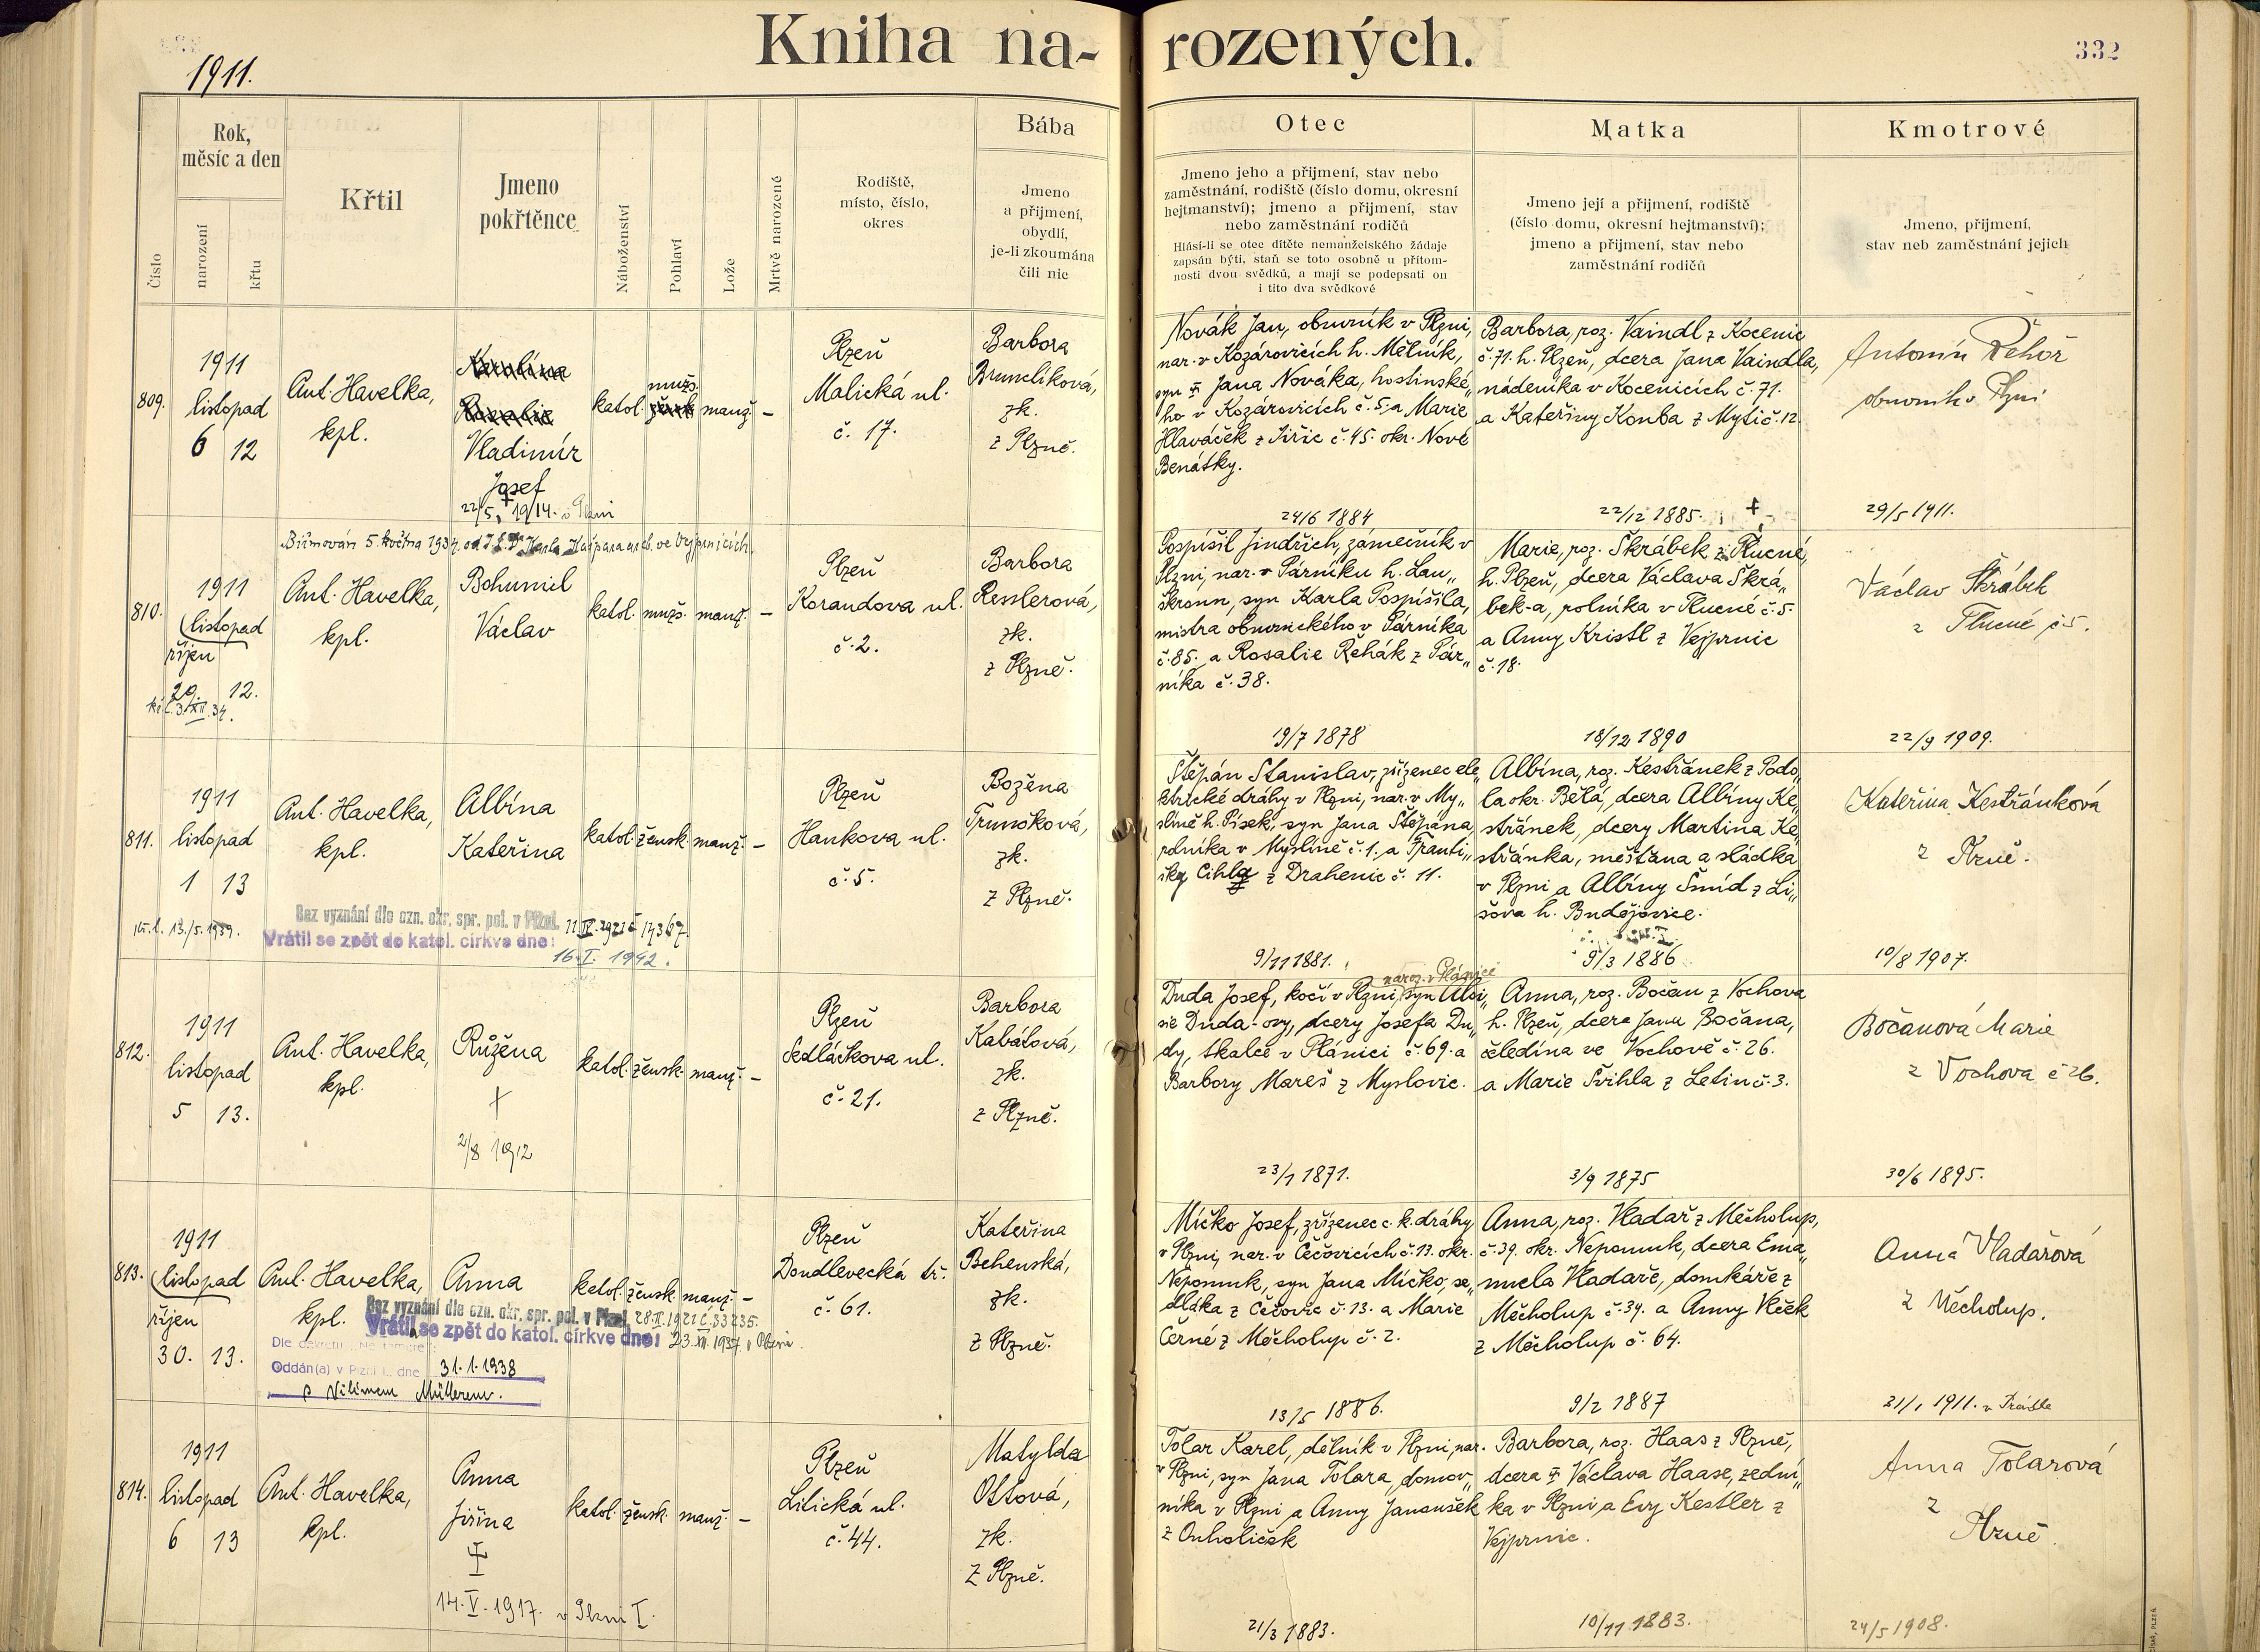 Kniha na-
rozených.
332
1911.
Číslo
Rok,
měsíc a den
narození
křtu
Křtil
Jmeno
pokřtěnce
Náboženství
Pohlaví
Lože
Mrtvě narozené
Rodiště,
místo, číslo,
okres
Bába
Jmeno
a přijmení,
obydlí,
je-li zkoumána
čili nic
Otec
Jmeno jeho a přijmení, stav nebo
zaměstnání, rodiště (číslo domu, okresní
hejtmanství); jmeno a přijmení, stav
nebo zaměstnání rodičů
Hlásí-li se otec dítěte nemanželského žádaje
zapsán býti, staň se toto osobně u přítom-
nosti dvou svědků, a mají se podepsati on
i tito dva svědkové
Matka
Jmeno její a přijmení, rodiště
(číslo domu, okresní hejtmanství);
jmeno a přijmení, stav nebo
zaměstnání rodičů
Kmotrové
Jmeno, přijmení,
stav neb zaměstnání jejich
809.
1911
listopad
6 12
Ant. Havelka,
kpl.
Karolina
Rosalie
Vladimír
Josef
†
22/5 1914. v Plzni
katol.
mužs.
žensk.
manž.
–
Plzeň
Malická ul.
č. 17.
Barbora
Brunclíková,
zk.
z Plzně.
Novák Jan, obuvník v Plzni,
nar. v Kozárovicích h. Mělník,
syn † Jana Nováka, hostinské„
ho v Kozárovicích č. 5. a Marie
Hlaváček z Jiřic č. 45. okr. Nové
Benátky.
24/6 1884
Barbora, roz. Vaindl z Kocenic
č. 71. h. Plzeň, dcera Jana Vaindla,
nádeníka v Kocenicích č. 71.
a Kateřiny Konba z Mytí č. 12.
22/12 1885.
Antonín Řehoř
obuvník v Plzni
29/5 1911.
Biřmován 5. května 1934. od J. E. Dr Karla Kašpara arcib. ve Vejprnicích.
810.
1911
(listopad
říjen
20. 12.
kř. l. 3./XII. 34.
Ant. Havelka,
kpl.
Bohumil
Václav
katol. mužs. manž. –
Plzeň
Korandova ul.
č. 2.
Barbora
Resslerová,
zk.
z Plzně.
Pospíšil Jindřich, zámečník v
Plzni, nar. v Párníku h. Lan„
škroun, syn Karla Pospíšila,
mistra obuvnického v Párníka
č. 85. a Rosalie Řehák z Pár„
níka č. 38.
19/7 1878
Marie, roz. Škrábek z Tlucné,
h. Plzeň, dcera Václava Škrá„
bek-a, rolníka v Tlucné č. 5.
a Anny Kristl z Vejprnic
č. 18.
18/12 1890
Václav Škrábek
z Tlucné č 5.
22/9 1909.
811.
1911
listopad
1 13
kř. l. 13./5. 1939.
Ant. Havelka,
kpl.
Albína
Kateřina
katol. žensk. manž. –
Plzeň
Hankova ul.
č. 5.
Božena
Trunsková,
zk.
z Plzně.
Bez vyznání dle ozn. okr. spr. pol. v Plzni. 11.IV.1921 č 14367.
Vrátil se zpět do katol. církve dne:
16. I. 1942.
Štěpán Stanislav, zřízenec ele„
ktrické dráhy v Plzni, nar. v My„
slíně h. Písek, syn Jana Štěpána,
rolníka v Myslíně č. 1. a Franti„
šky Cihla z Drahenic č. 11.
9/11 1881.
Albína, roz. Kestřánek z Podo„
la okr. Bělá, dcera Albíny Ke„
střánek, dcery Martina Ke„
střánka, měšťana a sládka
v Plzni a Albíny Šmíd z Li„
šova h. Budějovice.
9/3 1886
Kateřina Kestřánková
z Plzně.
10/8 1907.
812.
1911
listopad
5 13.
Ant. Havelka,
kpl.
Růžena
†
2/8 1912
katol. žensk. manž. –
Plzeň
Sedláčkova ul.
č. 21.
Barbora
Kabátová,
zk.
z Plzně.
naroz. v Plánici
Duda Josef, kočí v Plzni, syn Aloi„
sie Duda-ovy, dcery Josefa Du„
dy, tkalce v Plánici č. 69. a
Barbory Mareš z Myslovic.
23/1 1871.
Anna, roz. Bočan z Vochova
h. Plzeň, dcera Jana Bočana,
čeledína ve Vochově č. 26.
a Marie Švihla z Letin č. 3.
3/9 1875
Bočanová Marie
z Vochova č 26.
30/6 1895.
813.
1911
(listopad
říjen
30. 13.
Ant. Havelka,
kpl.
Anna
katol. žensk. manž. –
Plzeň
Doudlevecká tř.
č. 61.
Kateřina
Behenská,
zk.
z Plzně.
Bez vyznání dle ozn. okr. spr. pol. v Plzni, 28.II.1921 č. 33235.
Vrátila se zpět do katol. církve dne: 23. XII. 1937 v Plzni.
Dle dekretu „Ne temere“:
Oddán(a) v Plzni I., dne 31. 1. 1938
s Vilémem Müllerem.
Míčko Josef, zřízenec c. k. dráhy
v Plzni, nar. v Čečovicích č. 13. okr.
Nepomuk, syn Jana Míčko, se„
dláka z Čečovic č. 13. a Marie
Černé z Měcholup č. 2.
13/5 1886.
Anna, roz. Vladař z Měcholup,
č. 39. okr. Nepomuk, dcera Ema„
nuela Vladaře, domkáře z
Měcholup č. 39. a Anny Vlček
z Měcholup č. 64.
9/2 1887
Anna Vladařová
z Měcholup.
21/1 1911.
814.
1911
listopad
6 13
Ant. Havelka,
kpl.
Anna
Jiřina
†
14. V. 1917. v Plzni I.
katol. žensk. manž. –
Plzeň
Lilická ul.
č. 44.
Matylda
Ottová,
zk.
Z Plzně.
Tolar Karel, dělník v Plzni, nar.
v Plzni, syn Jana Tolara, domov„
níka v Plzni a Anny Janoušek
z Ouholiček
21/3 1883.
Barbora, roz. Haas z Plzně,
dcera † Václava Haase, zední„
ka v Plzni a Evy Kestler z
Vejprnic.
10/11 1883.
Anna Tolarová
z
Plzně.
24/5 1908.